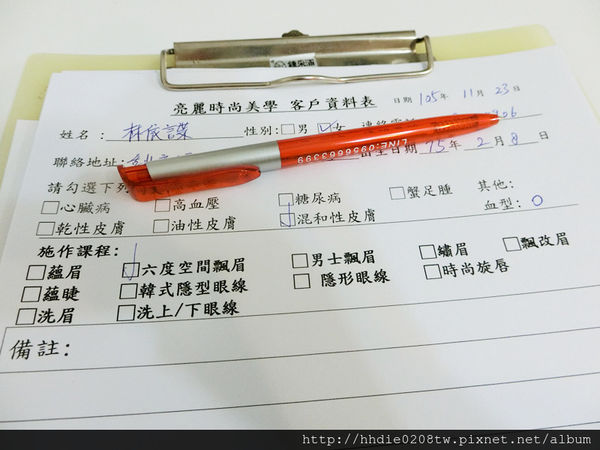 亮麗時尚美學 客戶資料表 日期 105年 11月 23日
姓名: 林 性別:□男 ☑女
聯絡地址: 生日期 75年 2月 8日
LINE:0956663399
請勾選下列
□心臟病 □高血壓 □糖尿病 □蟹足腫 其他:
□乾性皮膚 □油性皮膚 ☑混和性皮膚 血型: O
施作課程:
□蘊眉 ☑六度空間飄眉 □男士飄眉 □繡眉 □飄改眉
□蘊睫 □韓式隱型眼線 □隱形眼線 □時尚旋唇
□洗眉 □洗上/下眼線
備註:
http://hhdie0208tw.pixnet.net/album